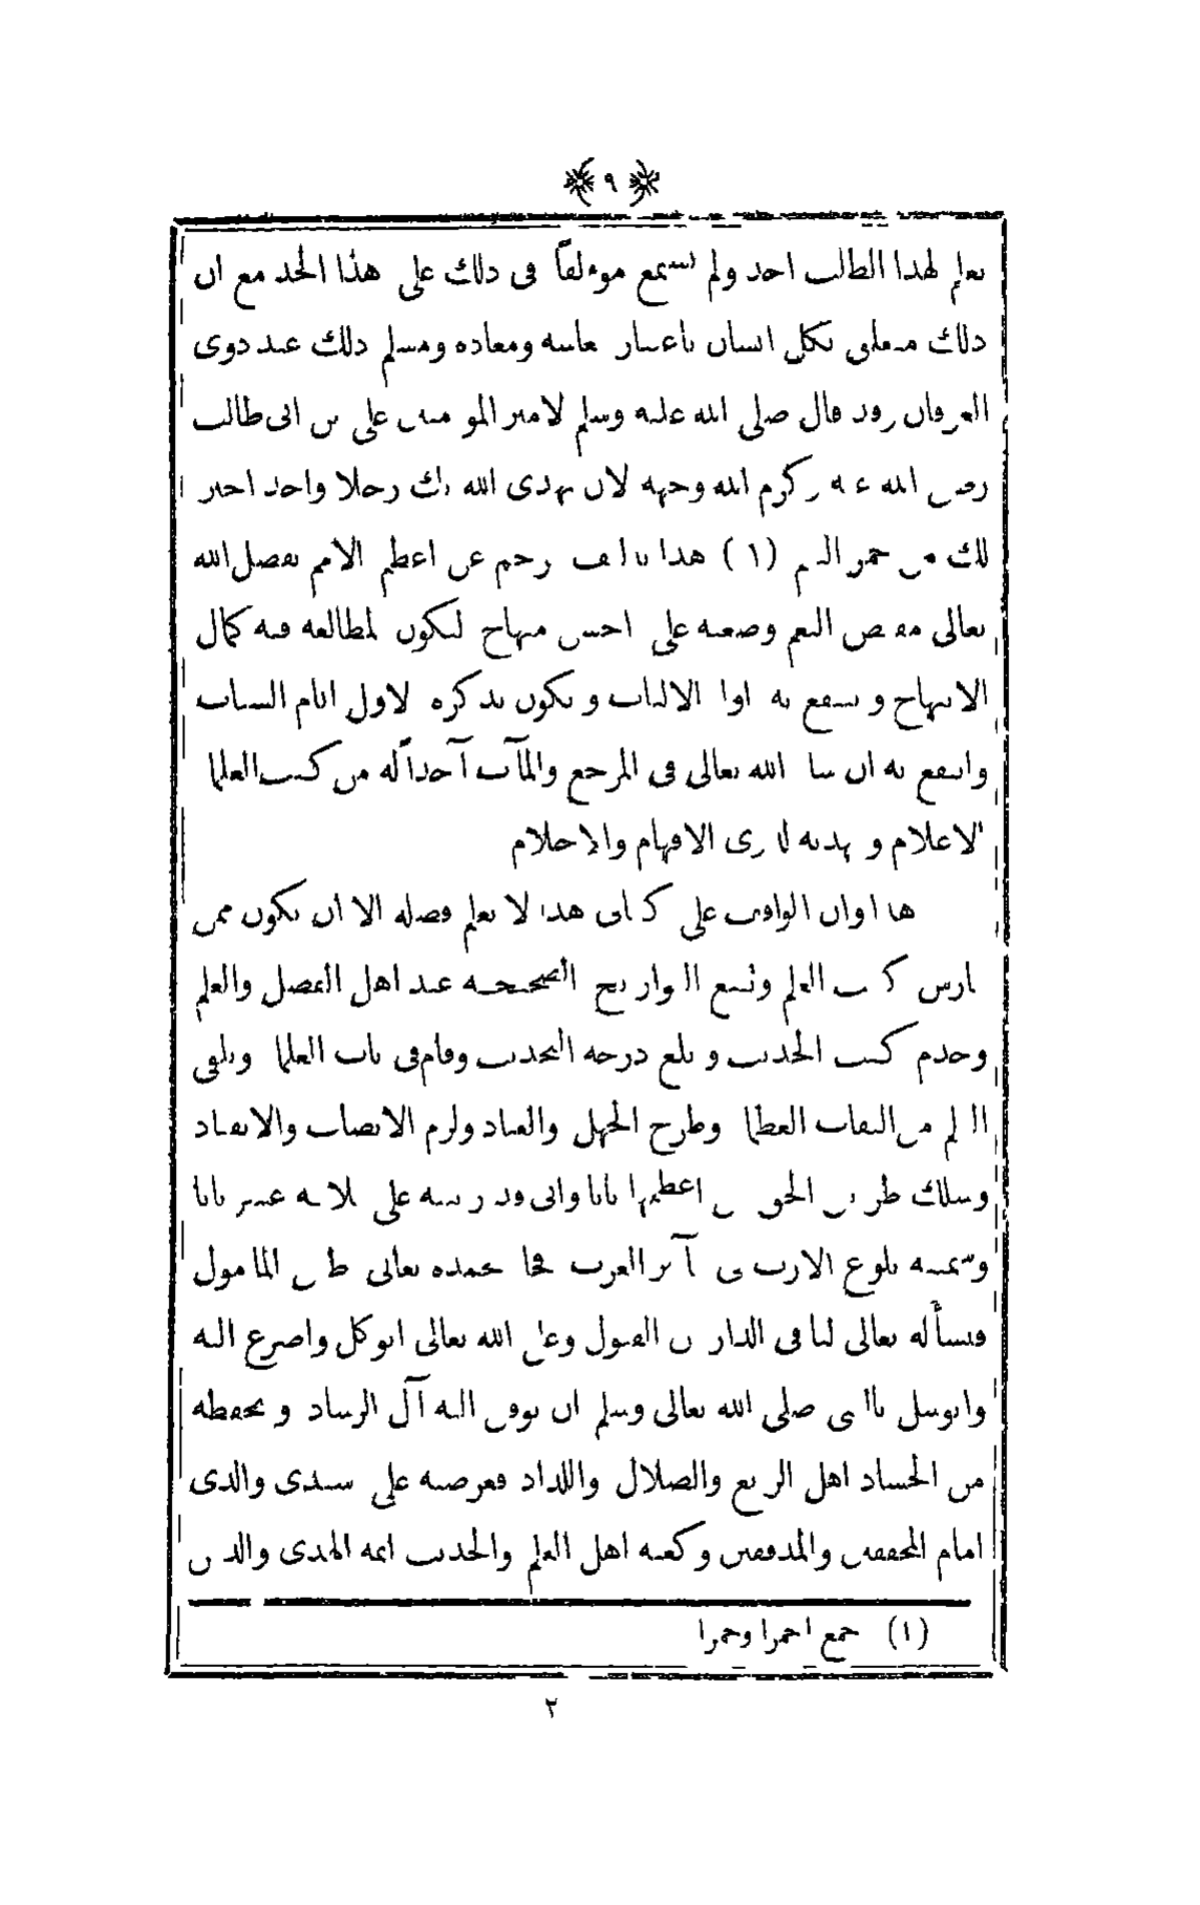 ﴿ ٩ ﴾
يعلم لهذا الطالب احد ولم نسمع موءلفاً فى ذلك على هذا الحد مع ان
ذلك متعلق بكل انسان باعتبار معاشه ومعاده ومسلم ذلك عند ذوى
العرفان وقد قال صلى الله عليه وسلم لامير المومنين على بن ابى طالب
رضى الله عنه وكرم الله وجهه لان يهدى الله بك رجلا واحدا خير
لك من حمر النعم (١) هذا تاليف رحم عن اعظم الامم بفضل الله
تعالى مفيض النعم وضعته على احسن منهاج ليكون لمطالعه فيه كمال
الابتهاج وينتفع به اولو الالباب ويكون تذكره لاول ايام الشباب
وانتفع به ان شا الله تعالى فى المرجع والمآب آخذاً له من كتب العلما
الاعلام وهديته لذوى الافهام والاحلام
هذا وان الواقف على كتابى هذا لا يعلم فضله الا ان يكون ممن
مارس كتب العلم وتتبع التواريخ الصحيحه عند اهل الفضل والعلم
وخدم كتب الحديث وبلغ درجه التحديث وقام فى باب العلما وتلقى
العلم من الثقات العظما وطرح الجهل والعناد ولزم الانصاف والانقياد
وسلك طريق الحق من اعظمها بابا وانى قد رتبته على ثلاثه عشر بابا
وسميته بلوغ الارب فى مآثر العرب فجا بحمده تعالى طبق المامول
فنسأله تعالى لنا فى الدارين القبول وعلى الله تعالى اتوكل واضرع اليه
واتوسل بالنبى صلى الله تعالى وسلم ان يوفق اليه آل الرشاد ويحفظه
من الحساد اهل الزيغ والضلال واللداد فعرضته على سيدى والدى
امام المحققين والمدققين وكعبه اهل العلم والحديث ايمه الهدى والدين
(١) جمع احمرا وحمرا
٢